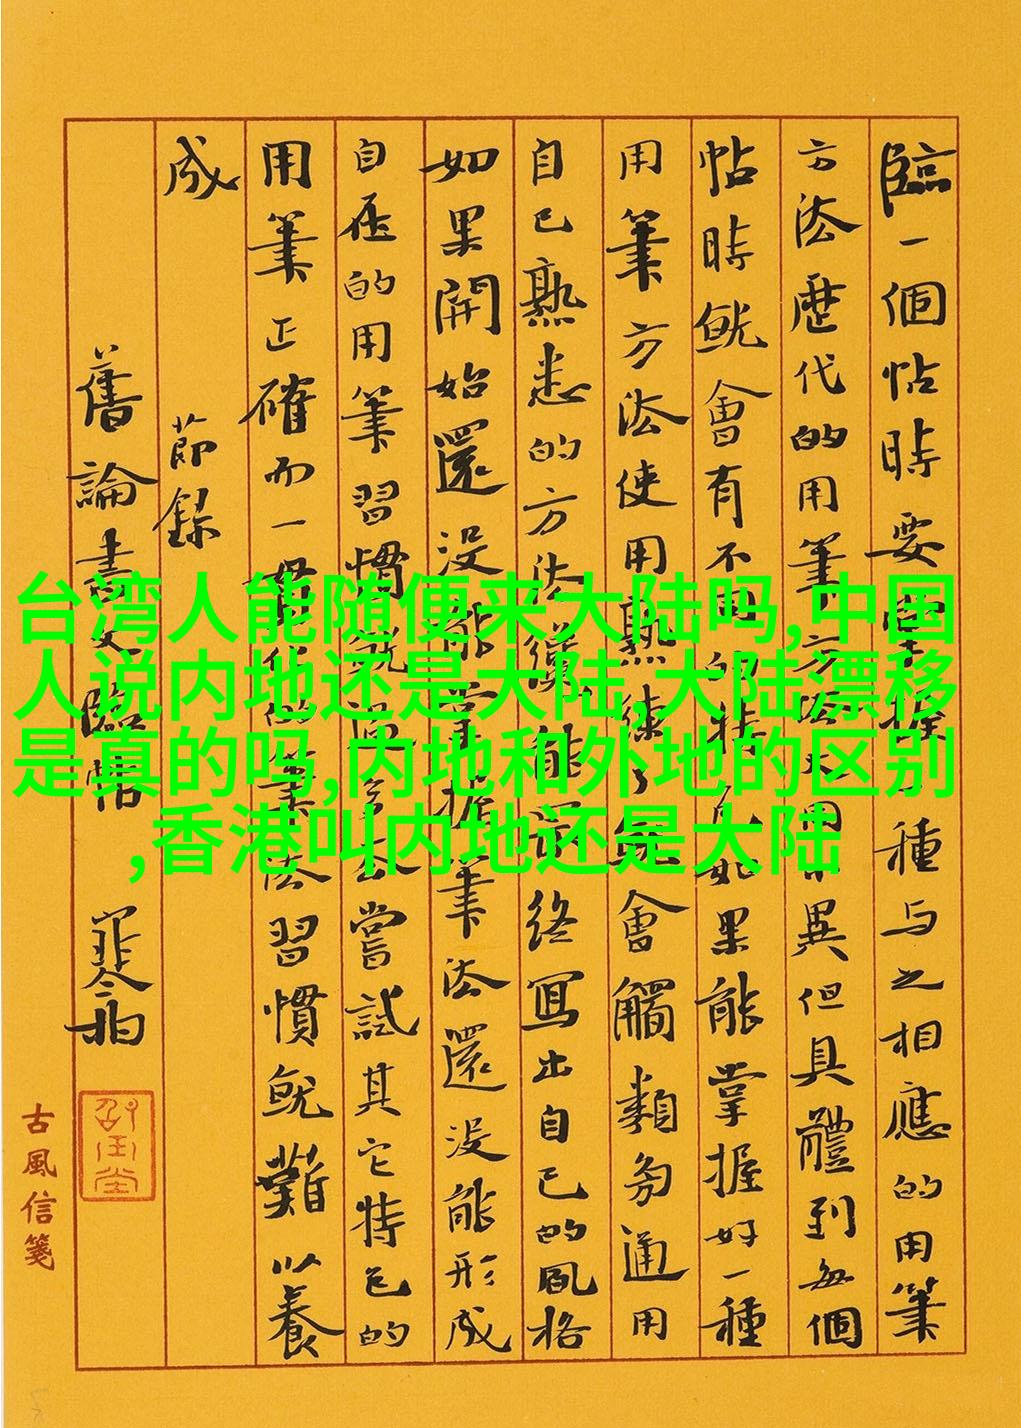 臨一個帖時要掌握種与之相應的用筆
方法歷代的用筆方法用異但具體到每個
帖時就會有不同的特色如果能掌握好一種
用筆方法使用熟練了就會觸類旁通用
自己熟悉的方法能最終寫出自己的風格
如果開始還沒能掌握筆法還沒能形成
自在的用筆習慣就過多去嘗試其它特色的
用筆正確而一貫的筆法習慣就難以養
成 節錄
舊論書文臨帖
古風信箋
台湾人能随便来大陆吗,中国
人说内地还是大陆,大陆漂移
是真的吗,内地和外地的区别
,香港叫内地还是大陆